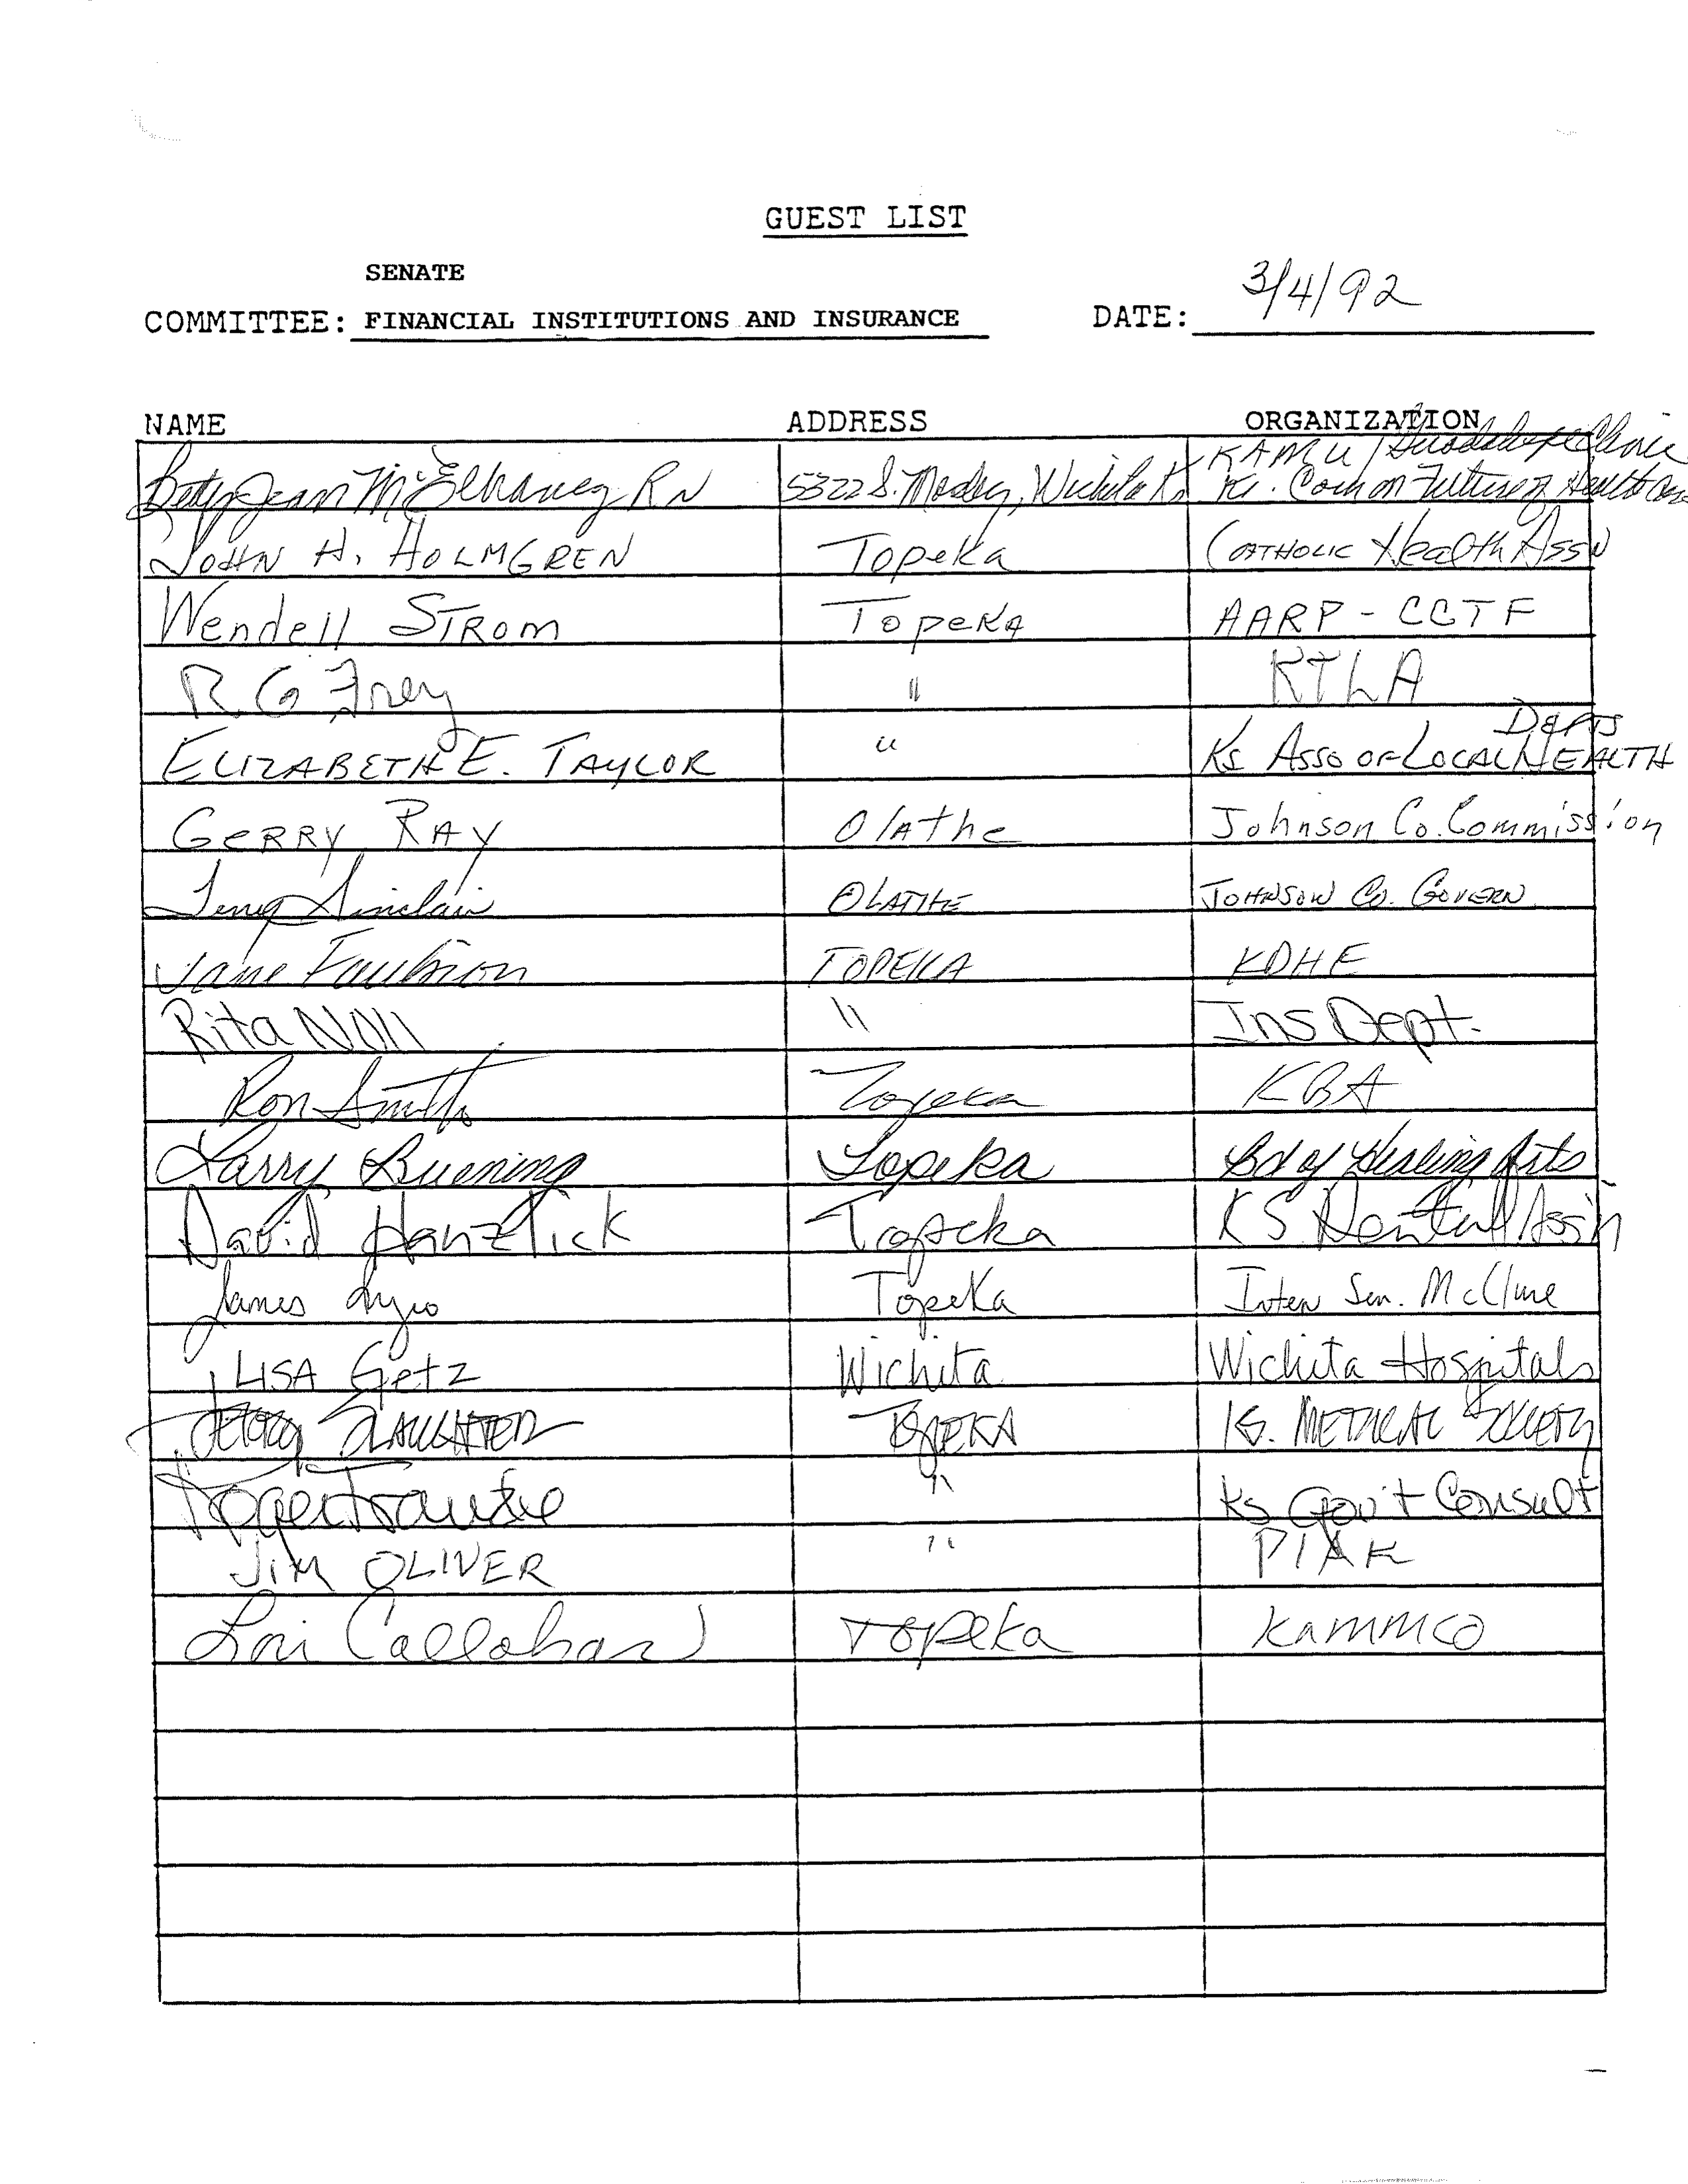 GUEST LIST
SENATE
COMMITTEE: FINANCIAL INSTITUTIONS AND INSURANCE DATE: 3/4/92
NAME ADDRESS ORGANIZATION
KAMU / Guadalupe Clinic
Betty Jean McElhaney RN 5322 S. Wichita Ks Ks. Com on Future of Health Care
JOHN H. HOLMGREN Topeka CATHOLIC Health Assn
Wendell STROM TOPEKA AARP - CCTF
R G Frey " KTLA
DEPTS
ELIZABETH E. TAYLOR " Ks ASSO OF LOCAL HEALTH
GERRY RAY Olathe Johnson Co. Commission
Sinclair OLATHE JOHNSON CO. GOVERN
Jane Faubion TOPEKA KDHE
Rita Noll " Ins Dept.
Ron Smith Topeka KBA
Larry Buening Topeka Bd of Healing Arts
David Hanzlick Topeka KS Dental Ass'n
James Topeka Inter Sen. McClure
LISA Getz Wichita Wichita Hospitals
SLAUGHTER TOPEKA KS. MEDICAL SOCIETY
Roger Franzke " Ks Gov't Consult
JIM OLIVER " PIAK
Lori Callahan Topeka KaMMCO